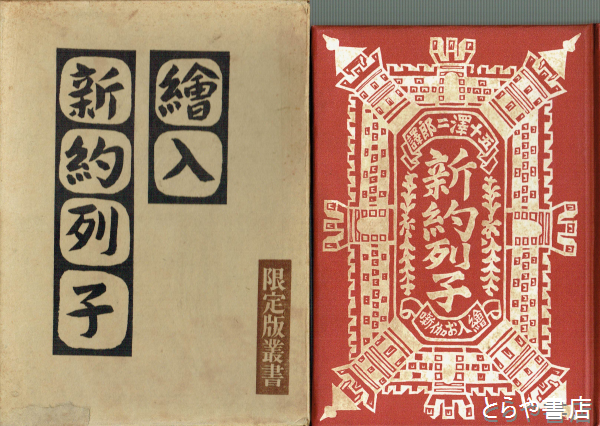 繪入
新約列子
限定版叢書
五十澤二郎譯
新約列子
繪入お伽噺
とらや書店